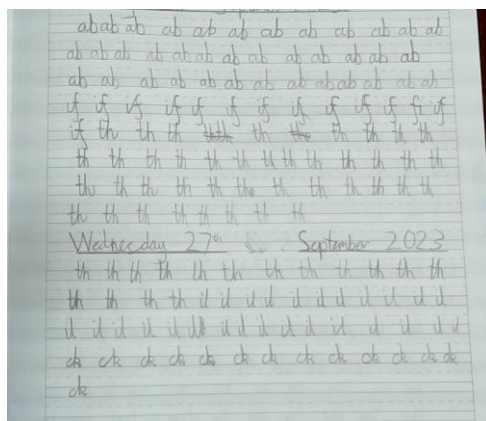 ab ab ab ab ab ab ab ab ab ab ab ab
ab ab ab ab ab ab ab ab ab ab ab ab ab
ab ab ab ab ab ab ab ab ab ab ab ab ab
if if if if if if if if if if if if if
if th th th th th th th th
th th th th th th th th th th th th th
th th th th th th th th th th th th
th th th th th th th th
Wednesday 27th September 2023
th th th th th th th th th th th th
th th th th il il il il il il il il il il il
il il il il il il il il il il il il il il il
ck ck ck ck ck ck ck ck ck ck ck ck ck
ck